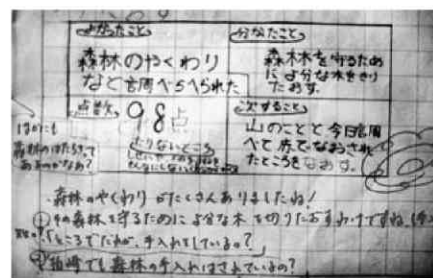 よかったこと
森林のやくわり
など調べらへられた
分なたこと
森林を守るため
によ分な木をきり
たおす。
点数 98点
たりないところ
次すること
山のことと今日調
べて赤でなおされ
たところをなおす。
ほかにも
森林のはたらきって
あるのかなあ?
・森林のやくわりがたくさんありましたね!
①その森林を守るためによ分な木を切りたおすわけですね。
「ところでだれが、手入れをしているの?
②柏崎でも森林の手入れはされているの?